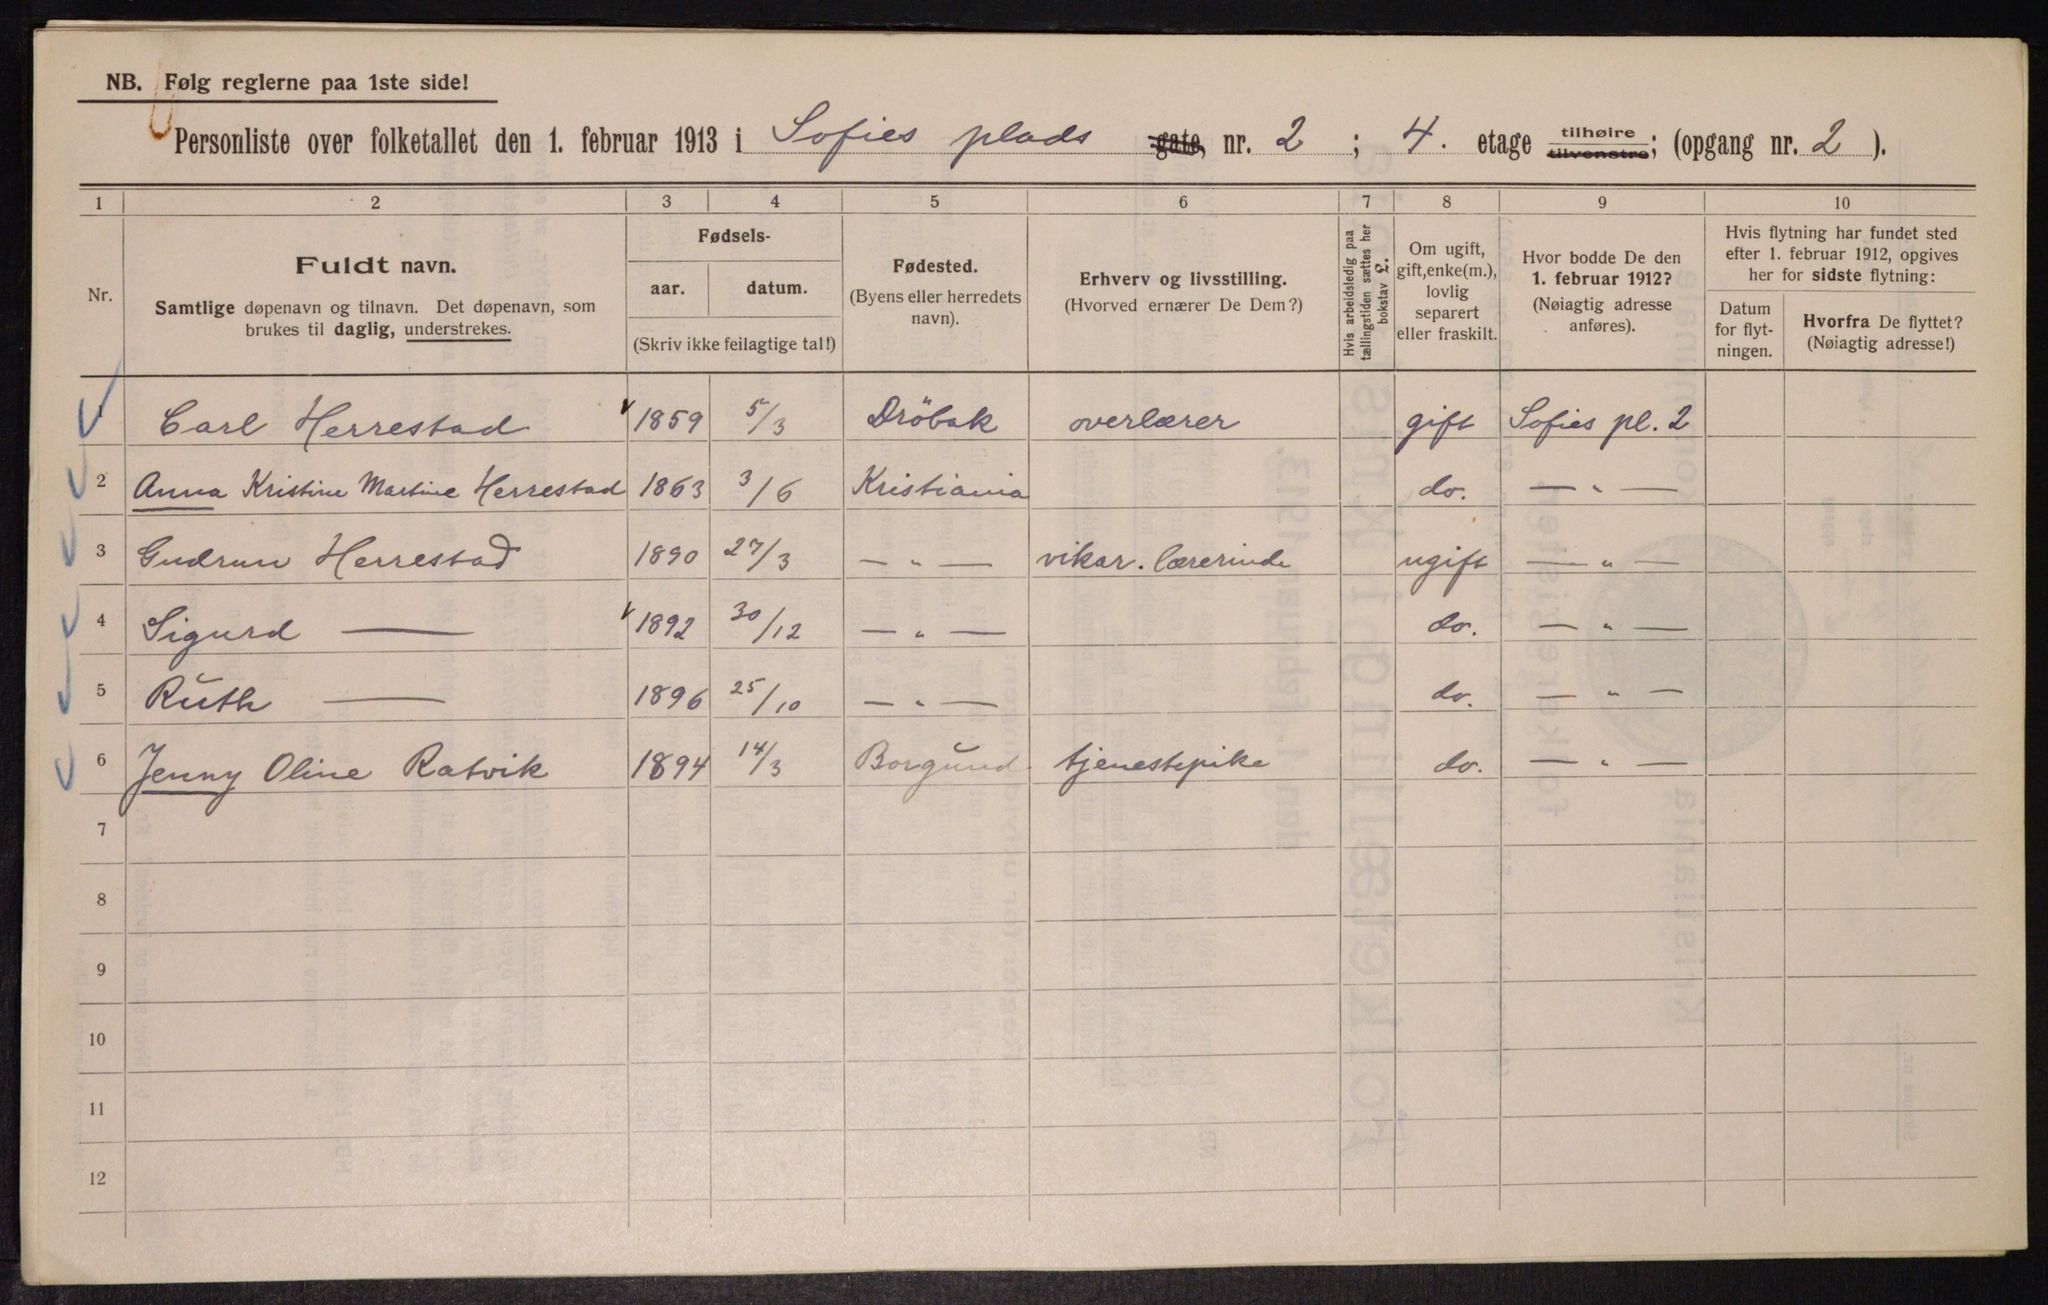 NB. Følg reglerne paa 1ste side!
Personliste over folketallet den 1. februar 1913 i Sofies plads gate, nr. 2 ; 4. etage tilhøire tilvenstre; (opgang nr. 2 ).
1 2 3 4 5 6 7 8 9 10
Nr.
Fuldt navn.
Samtlige døpenavn og tilnavn. Det døpenavn, som
brukes til daglig, understrekes.
Fødsels-
aar. datum.
(Skriv ikke feilagtige tal!)
Fødested.
(Byens eller herredets
navn).
Erhverv og livsstilling.
(Hvorved ernærer De Dem?)
Hvis arbeidsledig paa
tællingstiden sættes her
bokstav £.
Om ugift,
gift, enke(m.),
lovlig
separert
eller fraskilt.
Hvor bodde De den
1. februar 1912?
(Nøiagtig adresse
anføres).
Hvis flytning har fundet sted
efter 1. februar 1912, opgives
her for sidste flytning:
Datum
for flyt-
ningen.
Hvorfra De flyttet?
(Nøiagtig adresse!)
1 Carl Herrestad 1859 5/3 Dröbak overlærer gift Sofies pl. 2
2 Anna Kristine Martine Herrestad 1863 3/6 Kristiania do. — " —
3 Gudrun Herrestad 1890 27/3 — " — vikar. lærerinde ugift — " —
4 Sigurd — 1892 30/12 — " — do. — " —
5 Ruth — 1896 25/10 — " — do. — " —
6 Jenny Oline Ratvik 1894 14/3 Borgund tjenestepike do. — " —
7
8
9
10
11
12